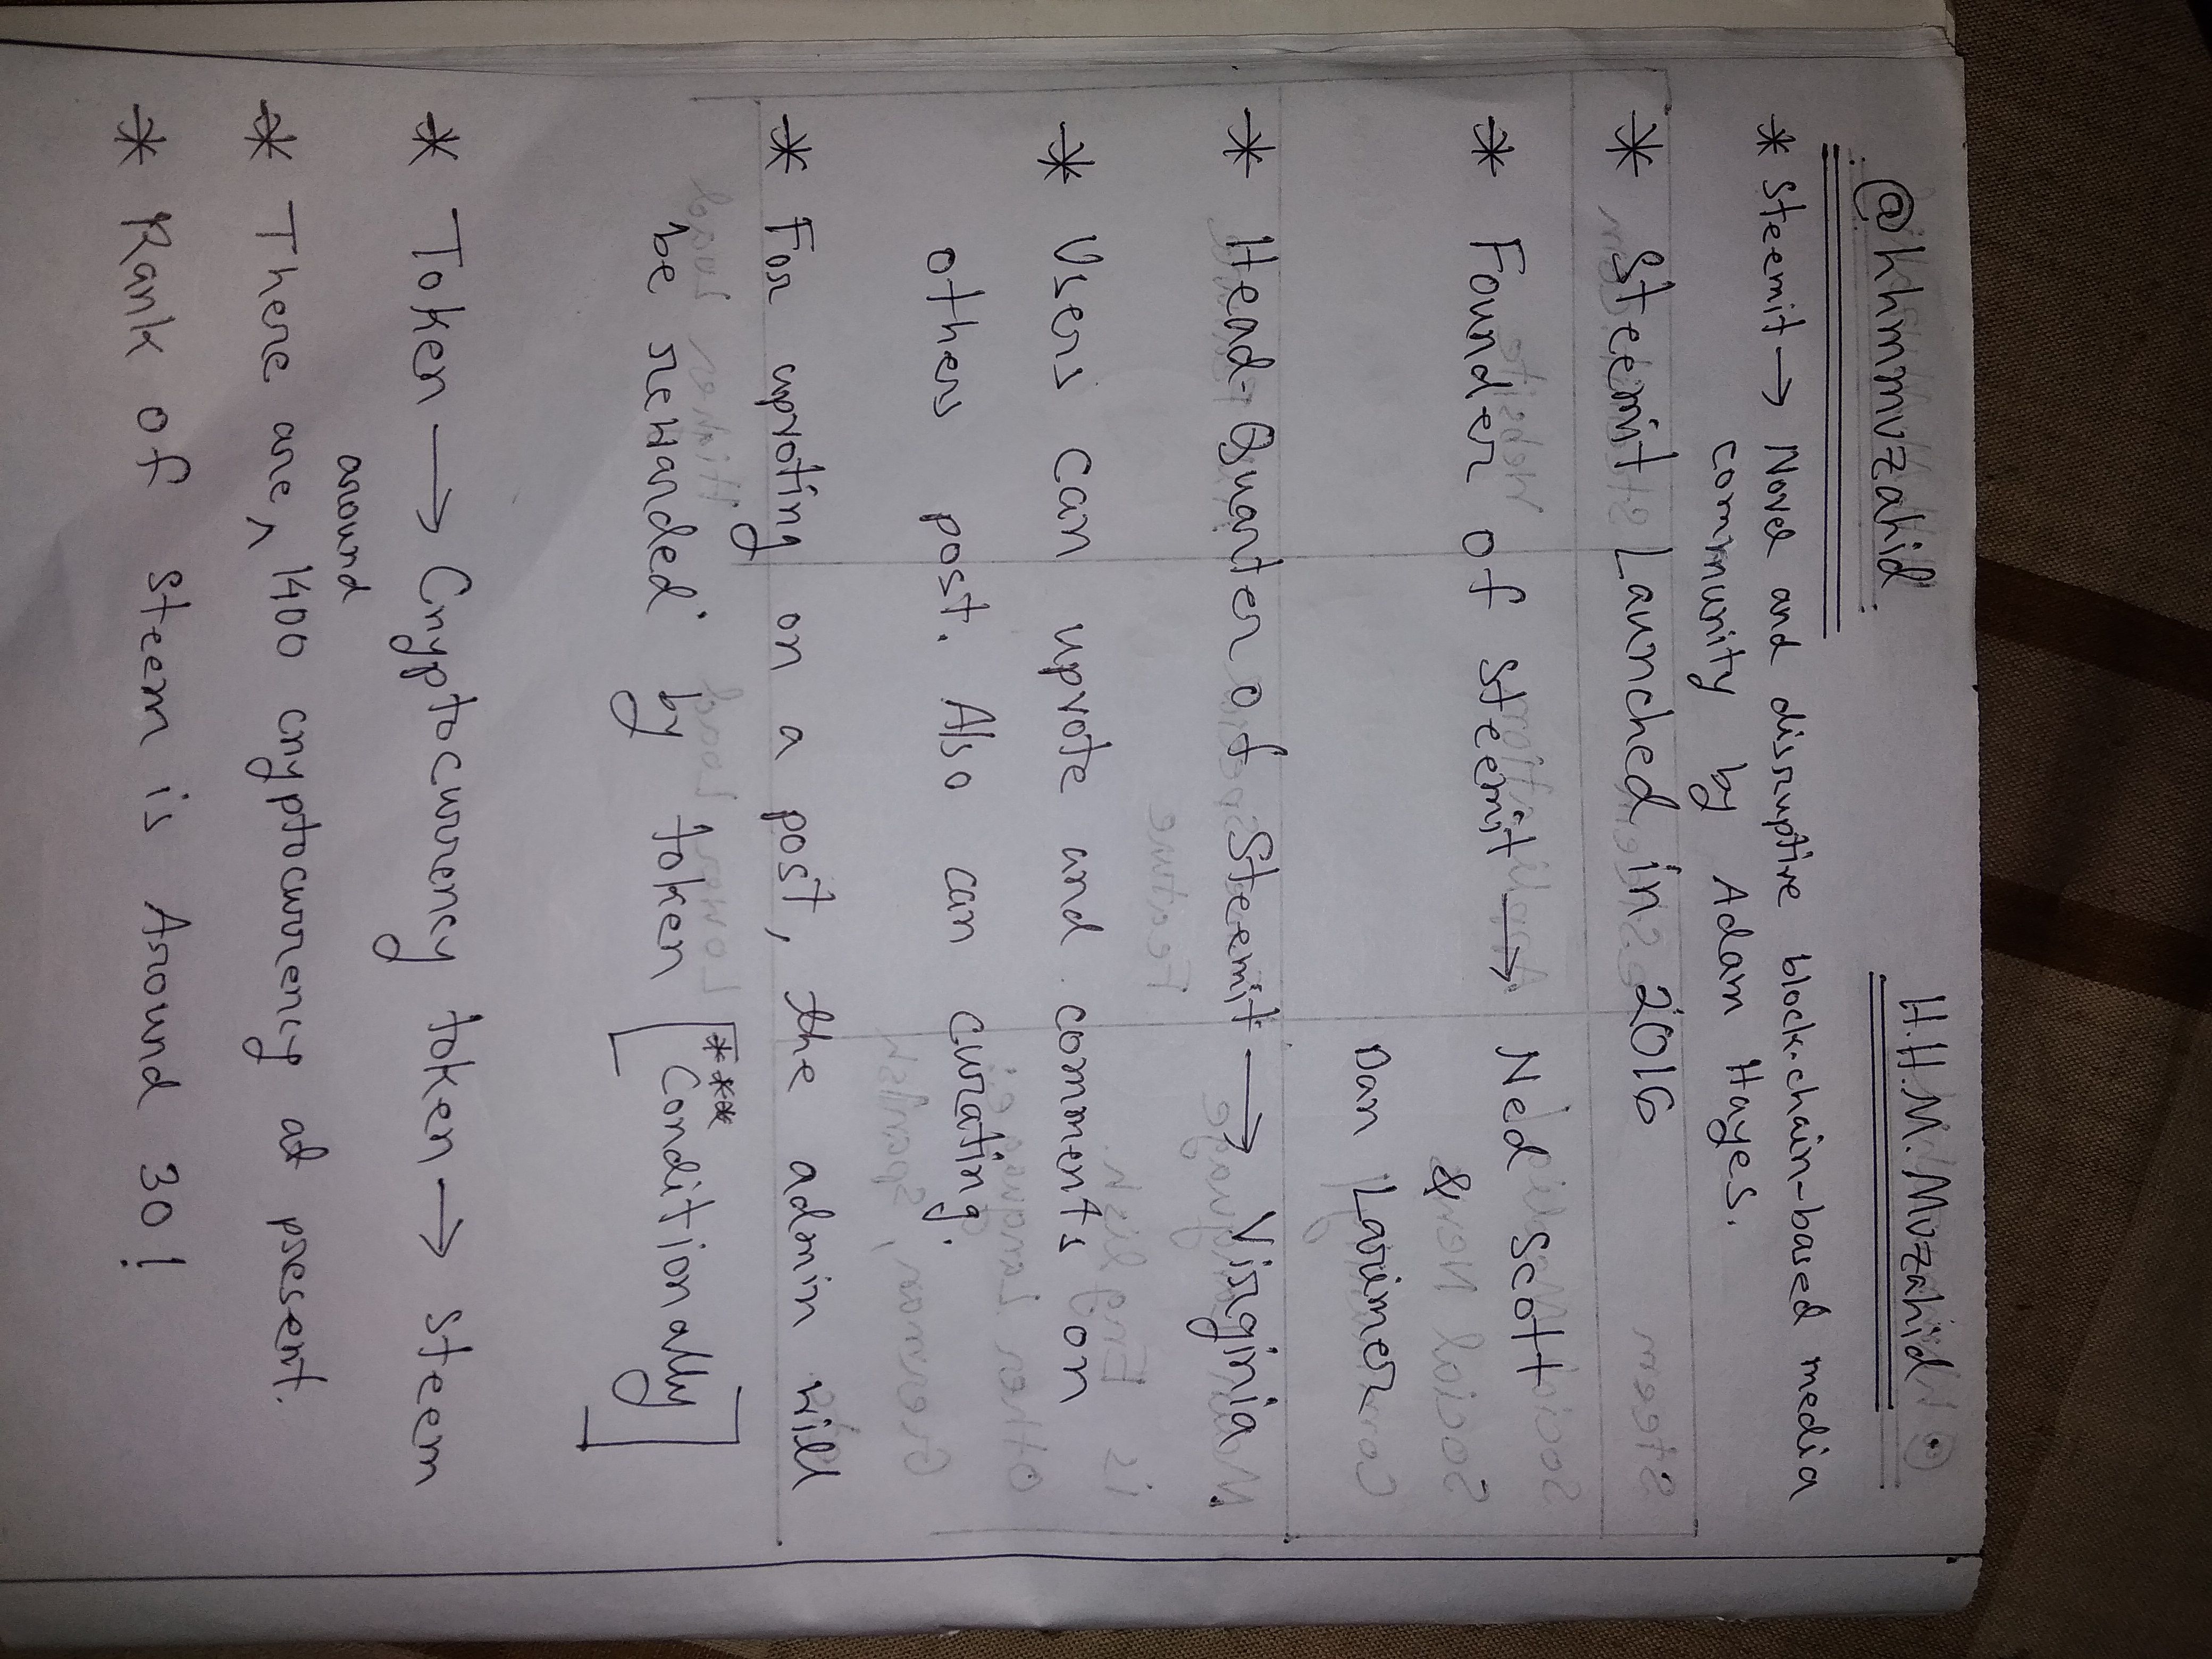 @hhmmuzahid
H.H.M.Muzahid
* Steemit → Novel and disruptive block-chain-based media
community by Adam Hayes.
* Steemit Launched in 2016
* Founder of steemit → Ned Scott
&
Dan Larimer
* Head-Quarter of Steemit → Virginia
* Users can upvote and comments on
others post. Also can curating.
* For upvoting on a post, the admin will
be rewarded by token [*** Conditionally]
* Token → Cryptocurrency token → steem
around
* There are ^ 1400 cryptocurrency at present.
* Rank of steem is Around 30!